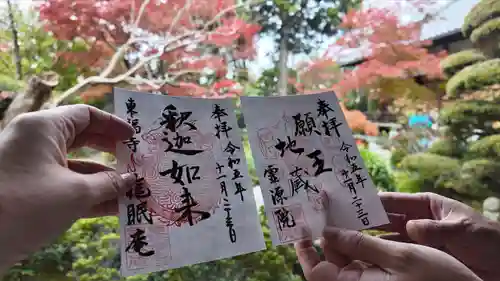 奉拝
令和五年十一月二十三日
釈迦如来
東福寺
龍眠庵
奉拝
令和五年十一月二十三日
願王
地蔵
霊源院